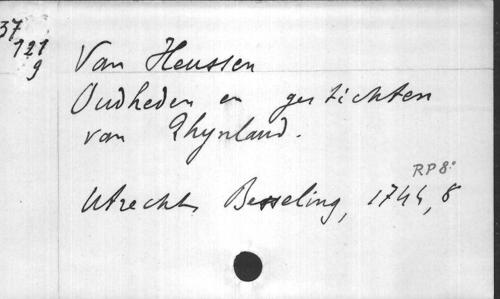 37
121
9
Van Heussen
Oudheden en gestichten
van Rhynland.
RP 8°
Utrecht, Besseling, 1744, 8